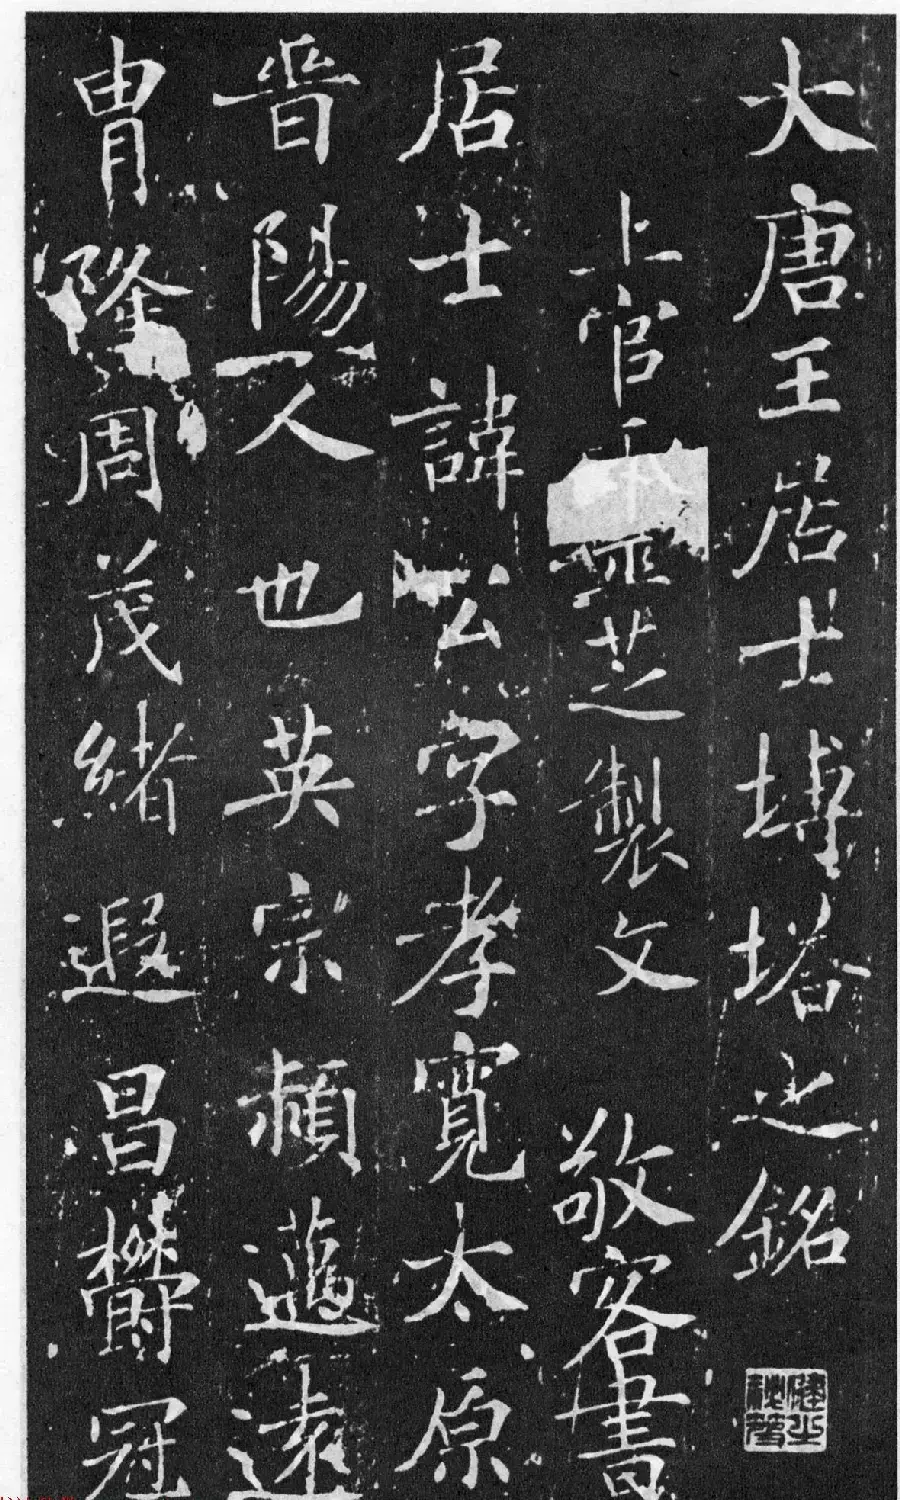 大唐王居士塼塔之銘
上官靈芝製文 敬客書
居士諱公字孝寬太原
晉陽人也英宗穎邁遠
胄隆周茂緒遐昌欝冠